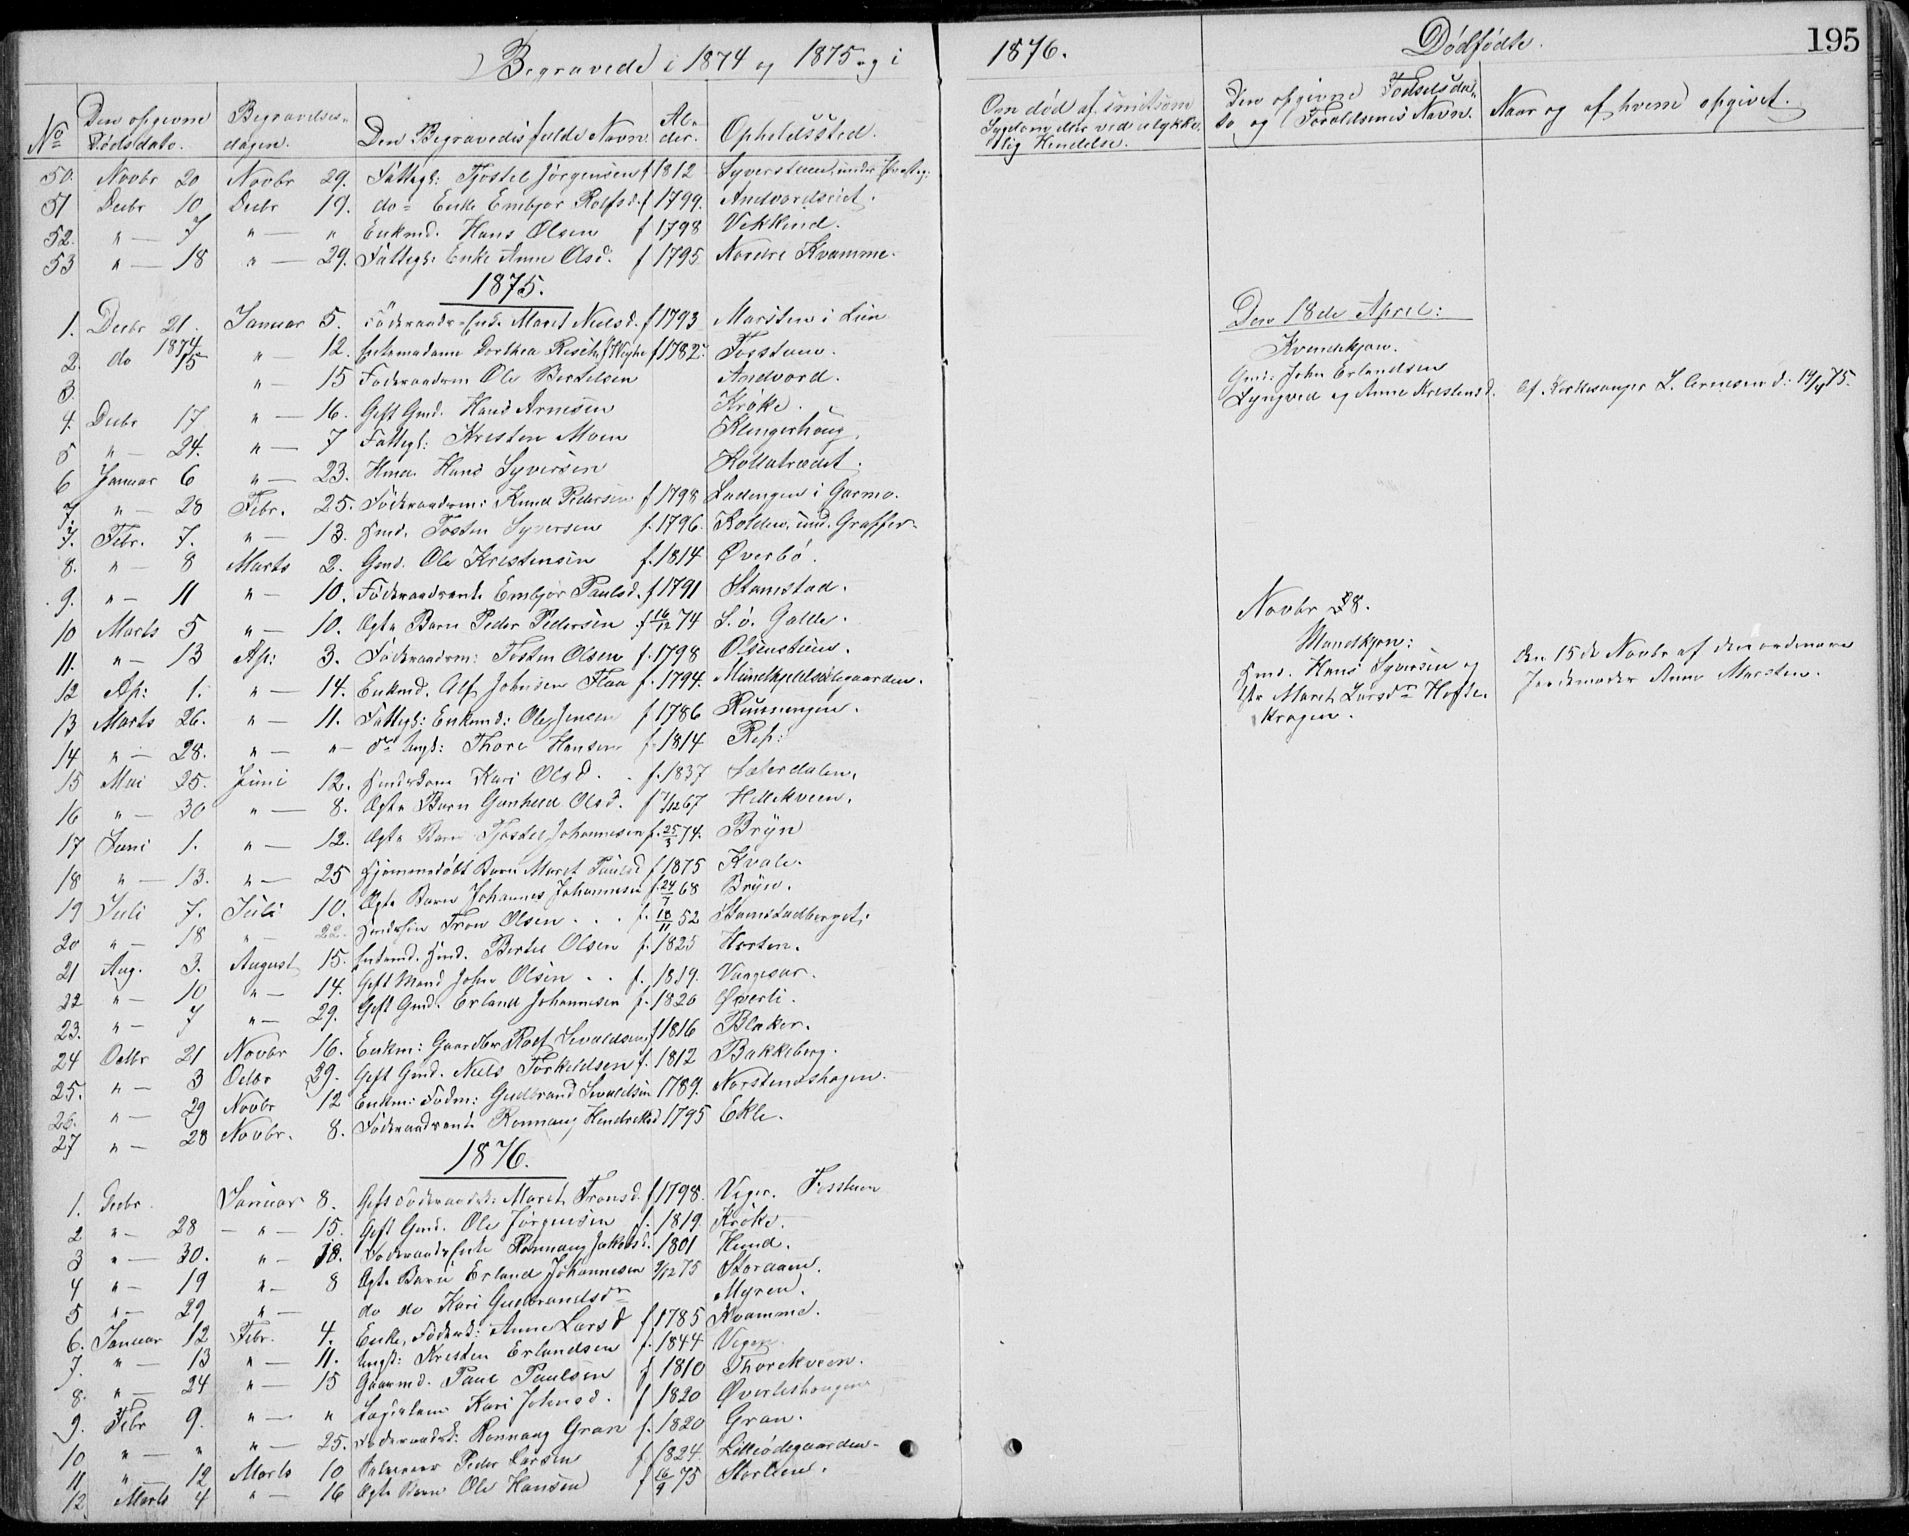 Begravede i 1874 og 1875 og i 1876.
Dødfødte.
195
No Den opgivne Dødsdato. Begravelses-dagen. Den Begravedes fulde Navn. Al-der. Opholdssted.
Om død af smitsom Sygdom eller ved ulykke-lig Hendelse.
Den opgivne Fødselsda-to og Forældrenes Navn.
Naar og af hvem opgivet.
50. Novbr 20 Novbr 29. Fattegl: Tjostel Jørgensen f 1812
51 Decbr 10 Decbr 19. do Enke Embjør Rolfsd. f 1799. Andvordsriet.
52. " — 7 " — " Enkmd. Hans Olsen f 1798 Vekkind.
53 " — 18 " — 29. Fattegl: Enke Anne Olsd. f 1795 Nordre Kvamme.
1875.
1. Decbr 21. 1874 Januar 5. Føderaads-Enke Maret Nielsd. f 1793 Marsten i Lien
2. do 15 " — 12. Enkemadame Dorthea f 1782. Fossteen.
3. " — 15 Føderaadsm Ole Bertelsen Andvord.
4. Decbr 17 " — 16. Gift Gmd. Hans Arnesen Krøke.
5 " — 24. " — 7 Fattegl: Kresten Moen Klingerhaug.
6 Januar 6 " — 23. Hmd. Hans Syversen
7. " — 28 Febr. 25. Føderaadsm: Knud Pedersen f 1798 Ladengen i Garmo.
7. Febr. 7. " — 13. Hmd. Tosten Syversen f. 1796. Kolden, und. Graffer.
8. " — 8 Marts 2. Gmd. Ole Kristensen f. 1814 Øverbø.
9. " — 11 " — 10. Føderaadsenk. Embjør Paulsd. f 1791 Stamstad.
10 Marts 5 " — 10. Ægte Barn Peder Pedersen f 16/12 74 S. ø. Galde.
11. " — 13 Ap: 3. Føderaadsm: Tosten Olsen f. 1798 Olsensteen.
12 Ap: 1. " — 14. Enkmd. Alf Johnsen Flaa f. 1794.
13 Marts 26. " — 11. Fattegl: Enkemd: Ole Jensen f 1786 Rusnengen.
14 " — 28. " — " — do Ungk: Thore Hansen f. 1814 Rep:
15 Mai 25. Juni 12. Kari Olsd. f. 1837 Sæterdalen.
16 " — 30 " — 8. Ægte Barn Gunhild Olsd. Hillekveen.
17 Juni 1. " — 12. Ægte Barn Tjostel Johannesen f. 25/5 74. Bryn
18 " — 13. " — 25 Hjemmedøbt Barn Maret Paulsd f 1875 Kvale.
19 Juli 7. Juli 10. Ægte Barn Johannes Johannesen f. 24/7 68 Bryn.
20 " — 18 " — 22. Tron Olsen . . . f. 18/11 52 Stamstadberget.
21 Aug. 3. August 15. Enkemd. Hmd. Bertel Olsen f. 1825 Horten.
22 " — 10 " — 14. Gift Mand John Olsen . . f. 1819. Vaagesar.
23. " — 7 " — 29. Gift Gmd. Erland Johannesen f. 1820 Øverli.
24 Octbr 21 Novbr 16. Enkm: Gaardbr Rolf Sevaldsen f 1816 Blaker.
25. " — 3 Octbr 29. Gift Gmd. Niels Torkeldsen f. 1812 Bakkeberg.
26. " — 29 Novbr 12 Enkm: Fødm: Gudbrand Sevaldsen 1789. Norstenshagen.
27 " — 28 Novbr. 8. Føderaadsenk. Ronnaug Hendriksd 1795 Ekle.
1876.
1. Decbr. Januar 8. Gift Føderaadsk: Maret Tronsd. f 1798. Veger. Fossteen
2 " — 28 — " — 15. Gift Gmd. Ole Jørgensen f. 1819. Krøke.
3 " — 30. " — 18. Føderaads Enke Ronnaug Jakobsd. 1801 Hund.
4 " — 19 " — 8 Ægte Barn Erland Johannesen 9/12 75 Storaaen.
5 " — 29 " — do do Kari Gudbrandsdr Myren.
6. Januar 12 Febr. 4. Enke, Føderd: Anne Larsd f 1785 Kvamme.
7. " — 13 " — 11. Ungk: Kresten Erlandsen f. 1844
8. " — 24 " — 15 Gaarmd. Paul Paulsen f 1810 Thorekveen.
9. Febr 9. " — " Kari Johnsd. f 1820 Øverlishaugen
10 " — " " — 25. Føderaadsk: Ronnaug Gran f. 1820 Gran.
11 " — 12 Marts 10 Peder Larsen f. 1824. Lilleødegaarden.
12 Marts 4 " — 16 Ægte Barn Ole Hansen f 16/9 75 Storlien.
Den 18de April:
Kvindekjøn.
Gmd. John Erlandsen
Lyngved og Anne Krestensd.
Af Kirkesanger L. Arnesen d: 19/4 75.
Novbr 28.
Mandkjøn:
Hmd. Hans Syversen og
Maret Larsdr Hofde-
kragen.
Den 15de Novbr af den ordenære
Jordemoder Anne Marsten.